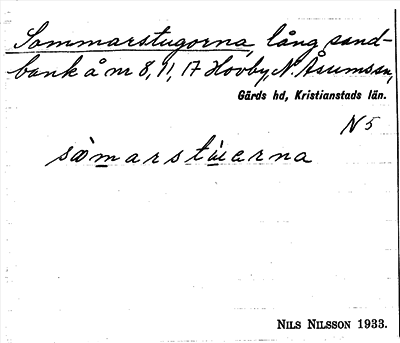 Sommarstugorna, lång sand-
bank å nr 8, 11, 17 Hovby, N. Åsumssn,
Gärds hd, Kristianstads län.
N 5
sòmarstùerna
NILS NILSSON 1933.